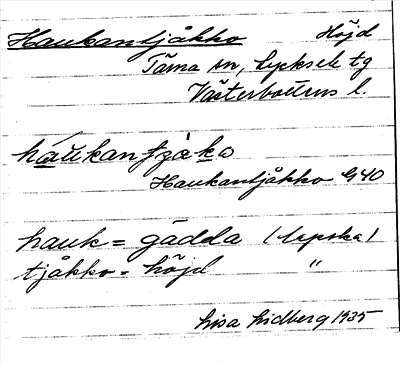 Haukantjåkko Höjd
Tärna sn, Lycksele tg
Västerbottens l.
háukantjåkko
Haukantjåkko G40
hauk = gädda (lapska)
tjåkko = höjd "
Lisa Lidberg 1935